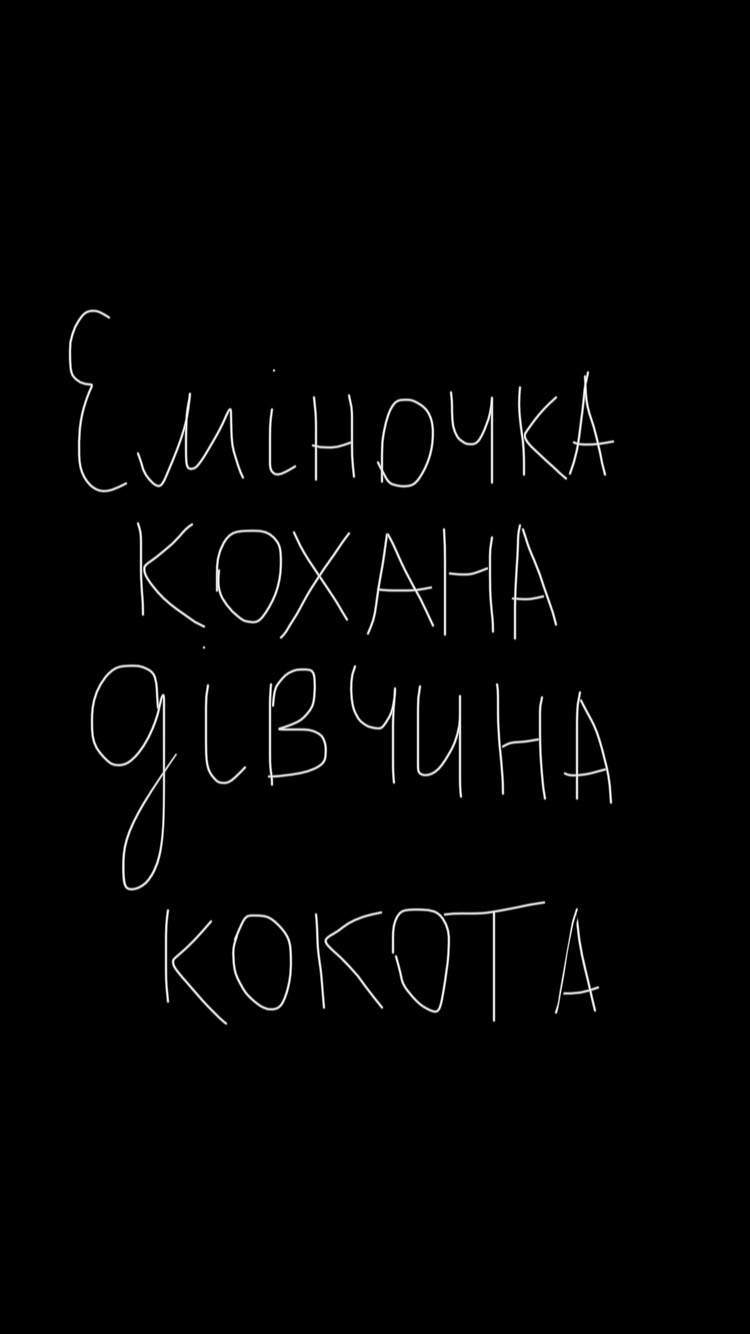 Еміночка
кохана
дівчина
кокота